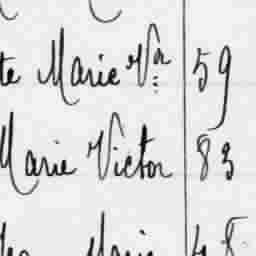 te Marie Vor 59
Marie Victor 83
Marie 48